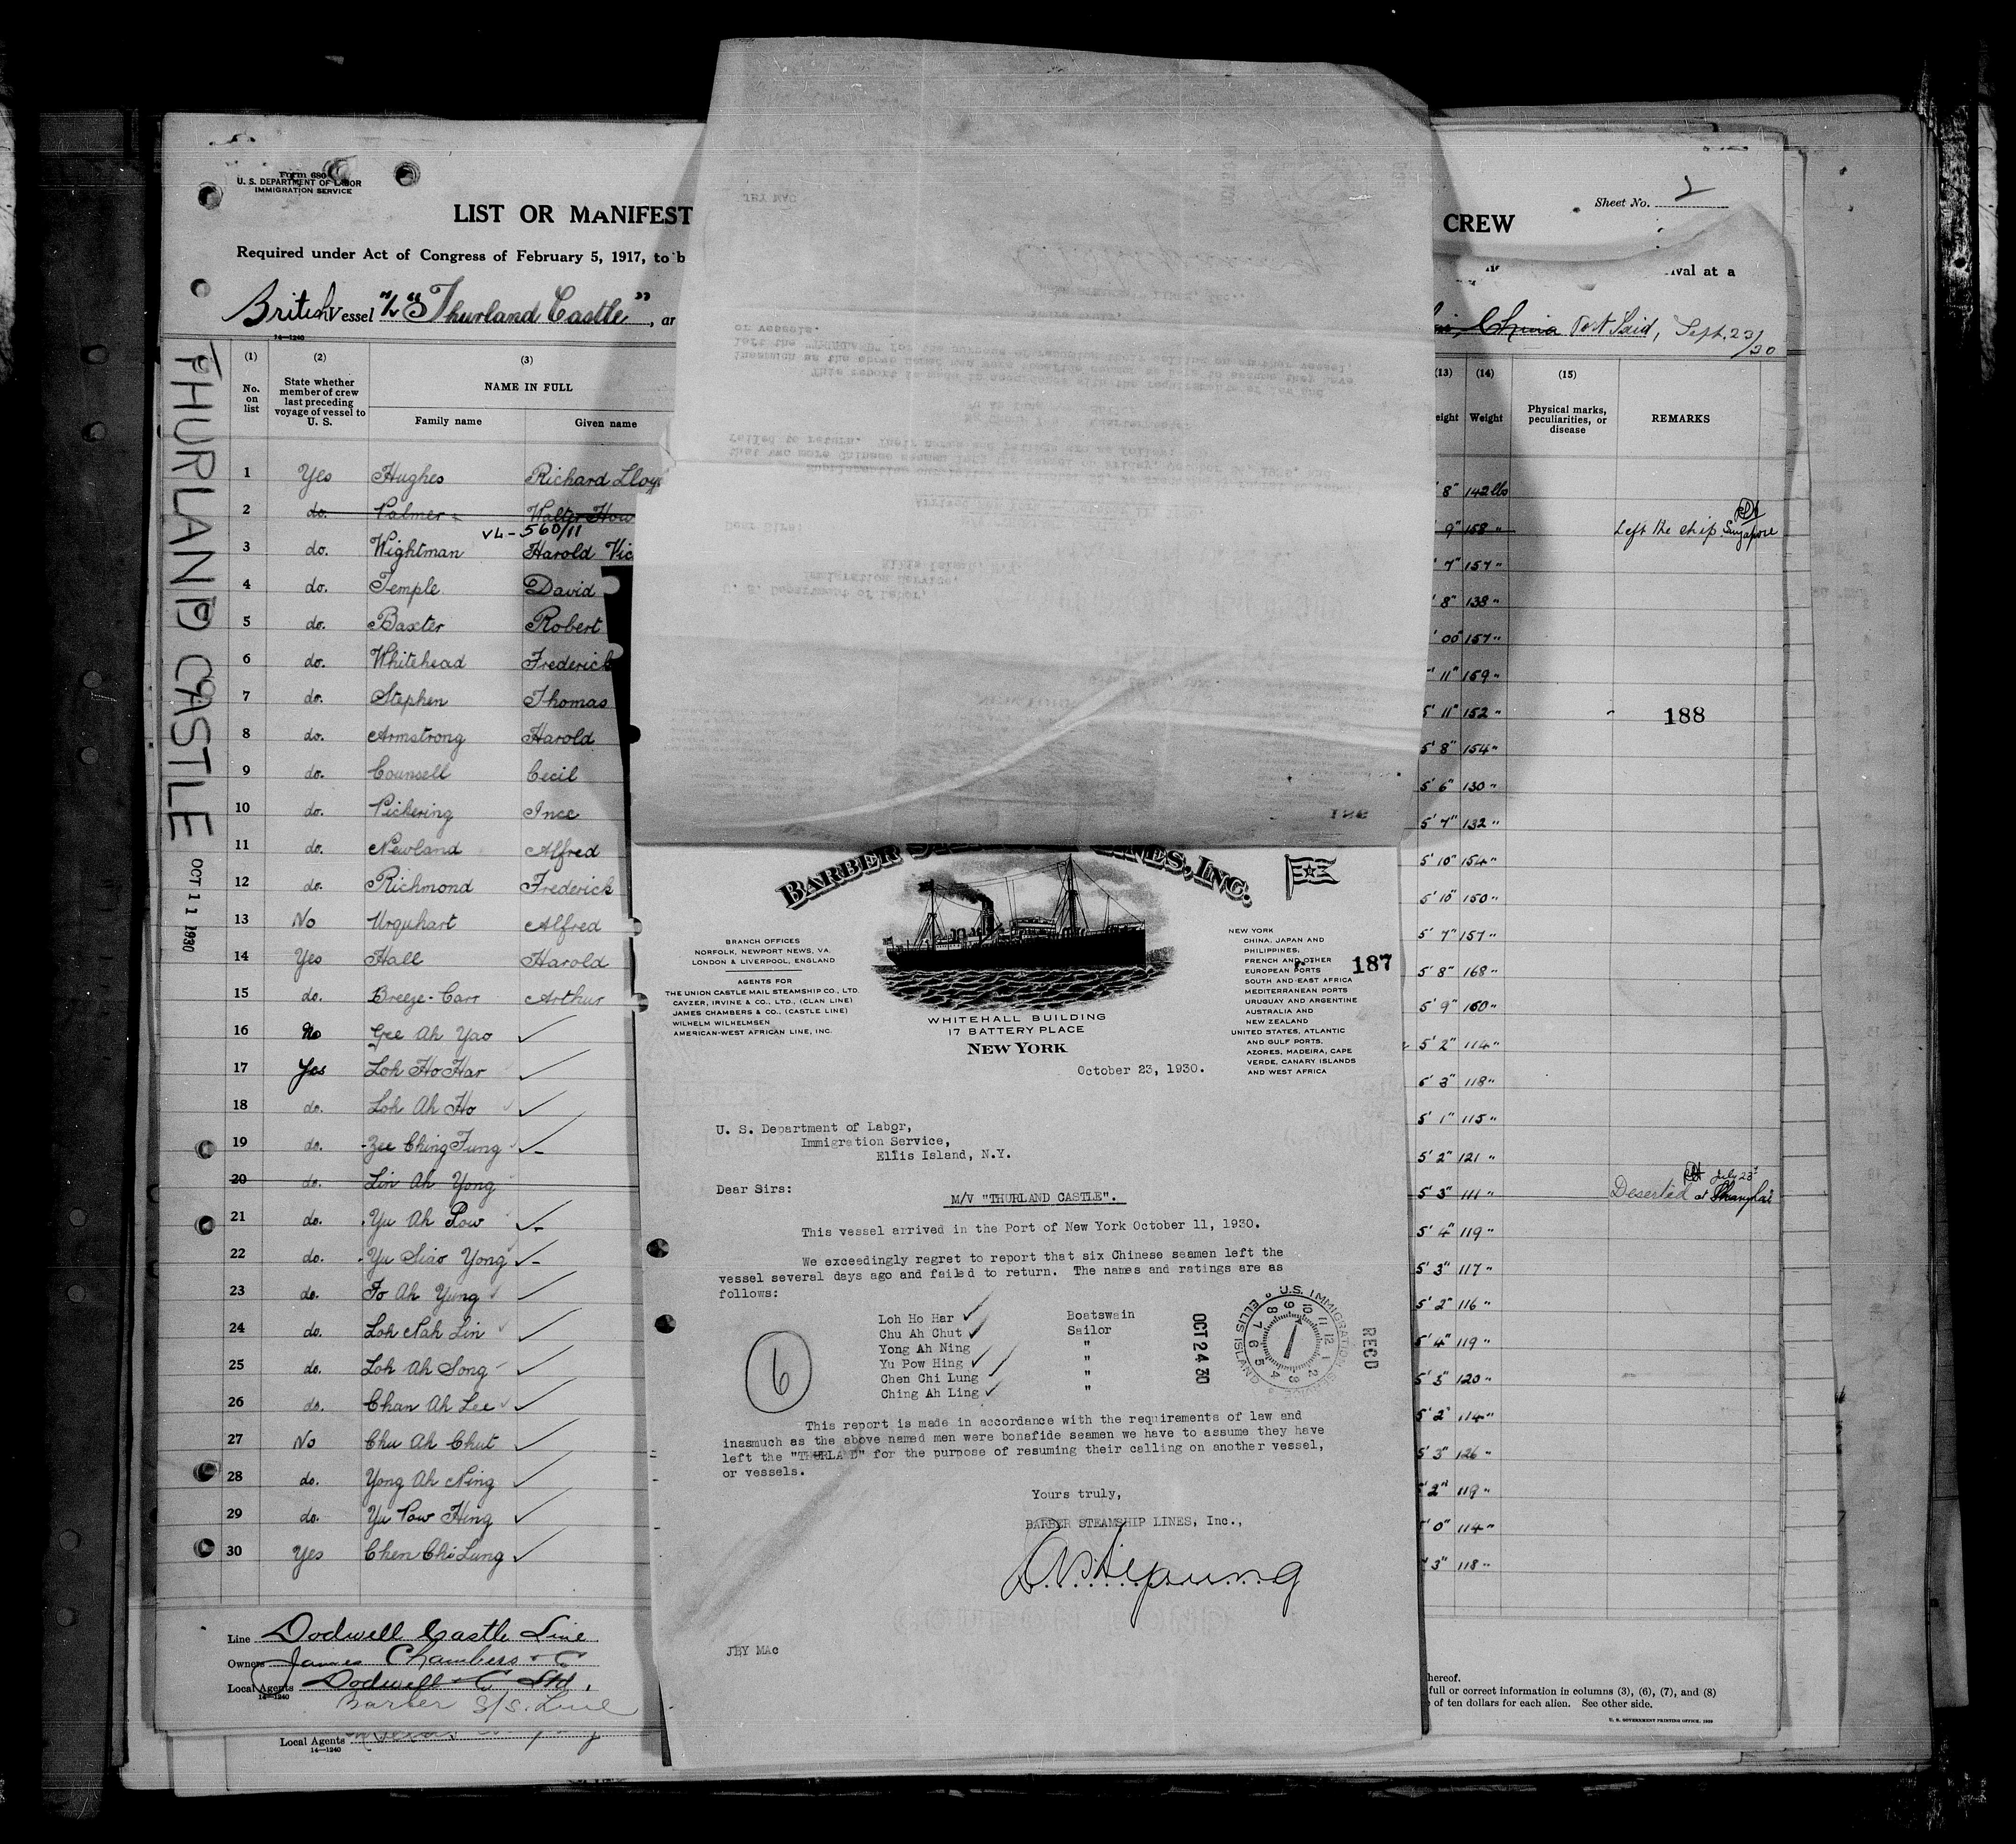 Form 680
U. S. DEPARTMENT OF LABOR
IMMIGRATION SERVICE
LIST OR MANIFEST
Required under Act of Congress of February 5, 1917, to b
British Vessel "Thurland Castle", ar
14—1240
THURLAND CASTLE
OCT 11 1930
(1) (2) (3)
No. on list
State whether member of crew last preceding voyage of vessel to U. S.
NAME IN FULL
Family name Given name
1 Yes Hughes Richard Lloy
2 do. Palmer Walter How
VL-560/11
3 do. Wightman Harold Vic
4 do. Temple David
5 do. Baxter Robert
6 do. Whitehead Frederick
7 do. Stephen Thomas
8 do. Armstrong Harold
9 do. Counsell Cecil
10 do. Pickering Ince
11 do. Newland Alfred
12 do. Richmond Frederick
13 No Urquhart Alfred
14 Yes Hall Harold
15 do. Breeze-Carr Arthur
16 No Gee Ah Yao ✓
17 Yes Loh Ho Har ✓
18 do. Loh Ah Ho ✓
19 do. Zee Ching Fung ✓
20 do. Lin Ah Yong
21 do. Yu Ah Pow ✓
22 do. Yu Siao Yong ✓
23 do. Fo Ah Yung ✓
24 do. Loh Nah Lin ✓
25 do. Loh Ah Song ✓
26 do. Chan Ah Lee ✓
27 No Chu Ah Chut ✓
28 do. Yong Ah Ning ✓
29 do. Yu Pow Hing ✓
30 Yes Chen Chi Lung ✓
Line Dodwell Castle Line
Owners James Chambers & Co
Local Agents Dodwell & Co Ltd,
14—1240
Barber S/S. Line
Local Agents
14—1240
BARBER STEAMSHIP LINES, INC.
BRANCH OFFICES
NORFOLK, NEWPORT NEWS, VA.
LONDON & LIVERPOOL, ENGLAND
AGENTS FOR
THE UNION CASTLE MAIL STEAMSHIP CO., LTD.
CAYZER, IRVINE & CO., LTD., (CLAN LINE)
JAMES CHAMBERS & CO., (CASTLE LINE)
WILHELM WILHELMSEN
AMERICAN-WEST AFRICAN LINE, INC.
WHITEHALL BUILDING
17 BATTERY PLACE
NEW YORK
NEW YORK
CHINA, JAPAN AND
PHILIPPINES,
FRENCH AND OTHER
EUROPEAN PORTS
SOUTH AND EAST AFRICA
MEDITERRANEAN PORTS
URUGUAY AND ARGENTINE
AUSTRALIA AND
NEW ZEALAND
UNITED STATES, ATLANTIC
AND GULF PORTS.
AZORES, MADEIRA, CAPE
VERDE, CANARY ISLANDS
AND WEST AFRICA
187
October 23, 1930.
U. S. Department of Labor,
Immigration Service,
Ellis Island, N.Y.
Dear Sirs:
M/V "THURLAND CASTLE".
This vessel arrived in the Port of New York October 11, 1930.
We exceedingly regret to report that six Chinese seamen left the
vessel several days ago and failed to return. The names and ratings are as
follows:
Loh Ho Har ✓ Boatswain
Chu Ah Chut ✓ Sailor
Yong Ah Ning "
Yu Pow Hing ✓ "
Chen Chi Lung ✓ "
Ching Ah Ling ✓ "
6
OCT 24 30
U.S. IMMIGRATION SERVICE ELLIS ISLAND
RECD
This report is made in accordance with the requirements of law and
inasmuch as the above named men were bonafide seamen we have to assume they have
left the "THURLAND" for the purpose of resuming their calling on another vessel,
or vessels.
Yours truly,
BARBER STEAMSHIP LINES, Inc.,
JBY MAc
Sheet No. 2
CREW
ival at a
China Port Said, Sept. 23/30
(13) (14) (15)
eight Weight
Physical marks, peculiarities, or disease
REMARKS
8" 142 lbs
9" 158 " Left the ship Singapore
7" 157 "
8" 138 "
00" 157 "
11" 159 "
5' 11" 152 " 188
5' 8" 154 "
5' 6" 130 "
5' 7" 132 "
5' 10" 154 "
5' 10" 150 "
5' 7" 157 "
5' 8" 168 "
5' 9" 160 "
5' 2" 114 "
5' 3" 118 "
5' 1" 115 "
5' 2" 121 "
5' 3" 111 " Deserted at Shanghai July 23rd
5' 4" 119 "
5' 3" 117 "
5' 2" 116 "
5' 4" 119 "
5' 3" 120 "
5' 2" 114 "
5' 3" 126 "
5' 2" 119 "
5' 0" 114 "
3" 118 "
hereof.
full or correct information in columns (3), (6), (7), and (8)
of ten dollars for each alien. See other side.
U. S. GOVERNMENT PRINTING OFFICE, 1929